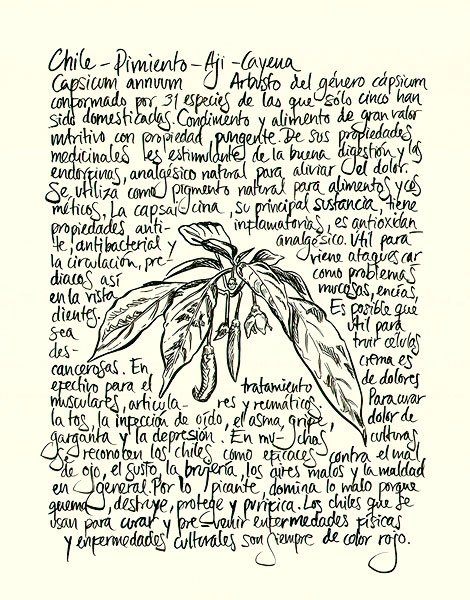 Chile - Pimiento - Aji - Cayena
Capsicum annuum Arbusto del género cápsicum
conformado por 31 especies de las que sólo cinco han
sido domesticadas. Condimento y alimento de gran valor
nutritivo con propiedad pungente. De sus propiedades
medicinales les estimulante de la buena digestión y las
endorfinas, analgésico natural para aliviar el dolor.
Se utiliza como pigmento natural para alimentos y cos
méticos. La capsai-cina, su principal sustancia, tiene
propiedades anti- inflamatorias, es antioxidan
te, antibacterial y analgésico. Útil para
la circulación, pre- viene ataques car
diacos así como problemas
en la vista mucosas, encías,
dientes. Es posible que
sea útil para
des- truir células
cancerosas. En crema es
efectivo para el tratamiento de dolores
musculares, articula- res y reumáticos. Para curar
la tos, la infección de oído, el asma, gripe, dolor de
garganta y la depresión. En mu- chas culturas
se reconocen los chiles como eficaces contra el mal
de ojo, el susto, la brujería, los aires malos y la maldad
en general. Por lo picante, domina lo malo porque
quema, destruye, protege y purifica. Los chiles que se
usan para curar y pre-venir enfermedades físicas
y enfermedades culturales son siempre de color rojo.